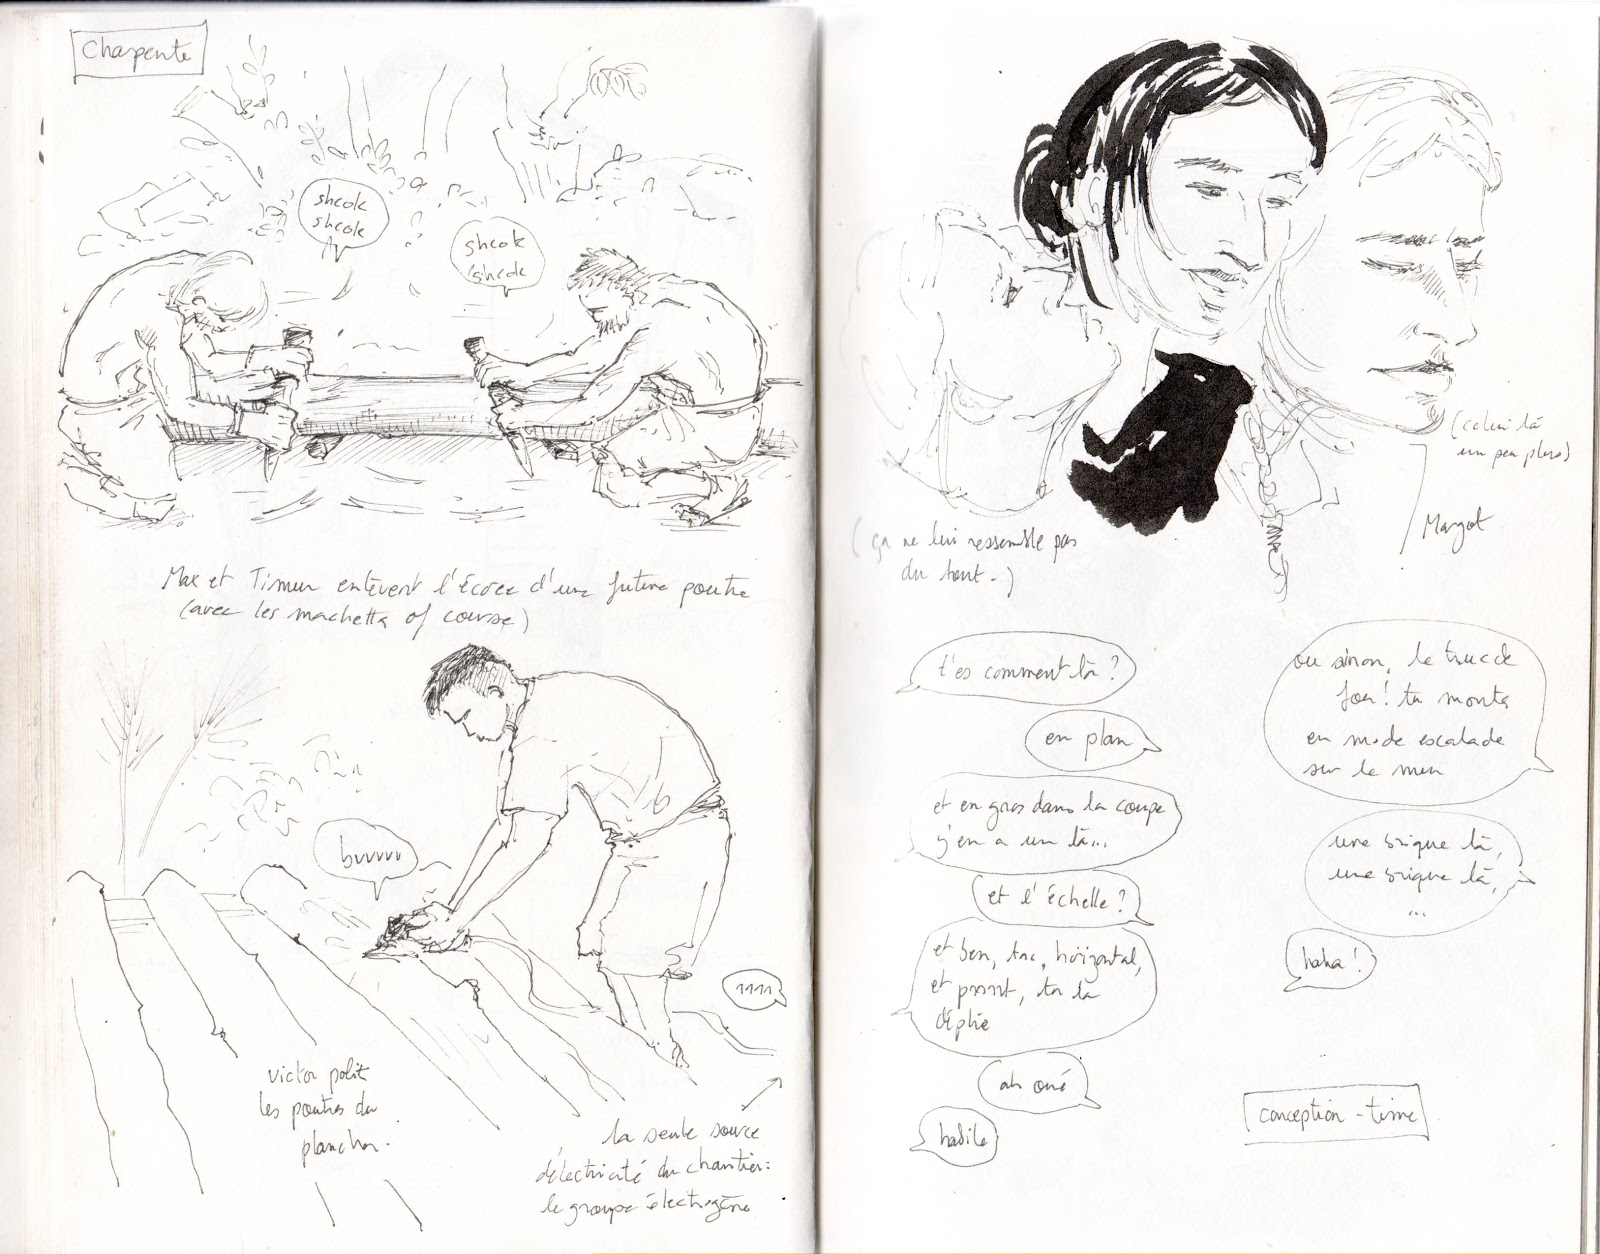 Charpente
shcok
shcok
shcok
shcok
Max et Timur enlèvent l'écorce d'une future poutre
(avec les machettes of course)
bvvvvv
1111
victor polit
les poutres du
plancher.
la seule source
d'électricité du chantier:
le groupe électrogène
(celui là
un peu plus)
Margot
(ça ne lui ressemble pas
du tout-)
t'es comment là?
en plan
et en gros dans la coupe
y'en a un là...
et l'échelle?
et ben, tac, horizontal,
et pssst, tu la
déplie
ah oué
habile
ou sinon, le truc de
fou! tu montes
en mode escalade
sur le mur
une brique là,
une brique là,
...
haha!
conception-time